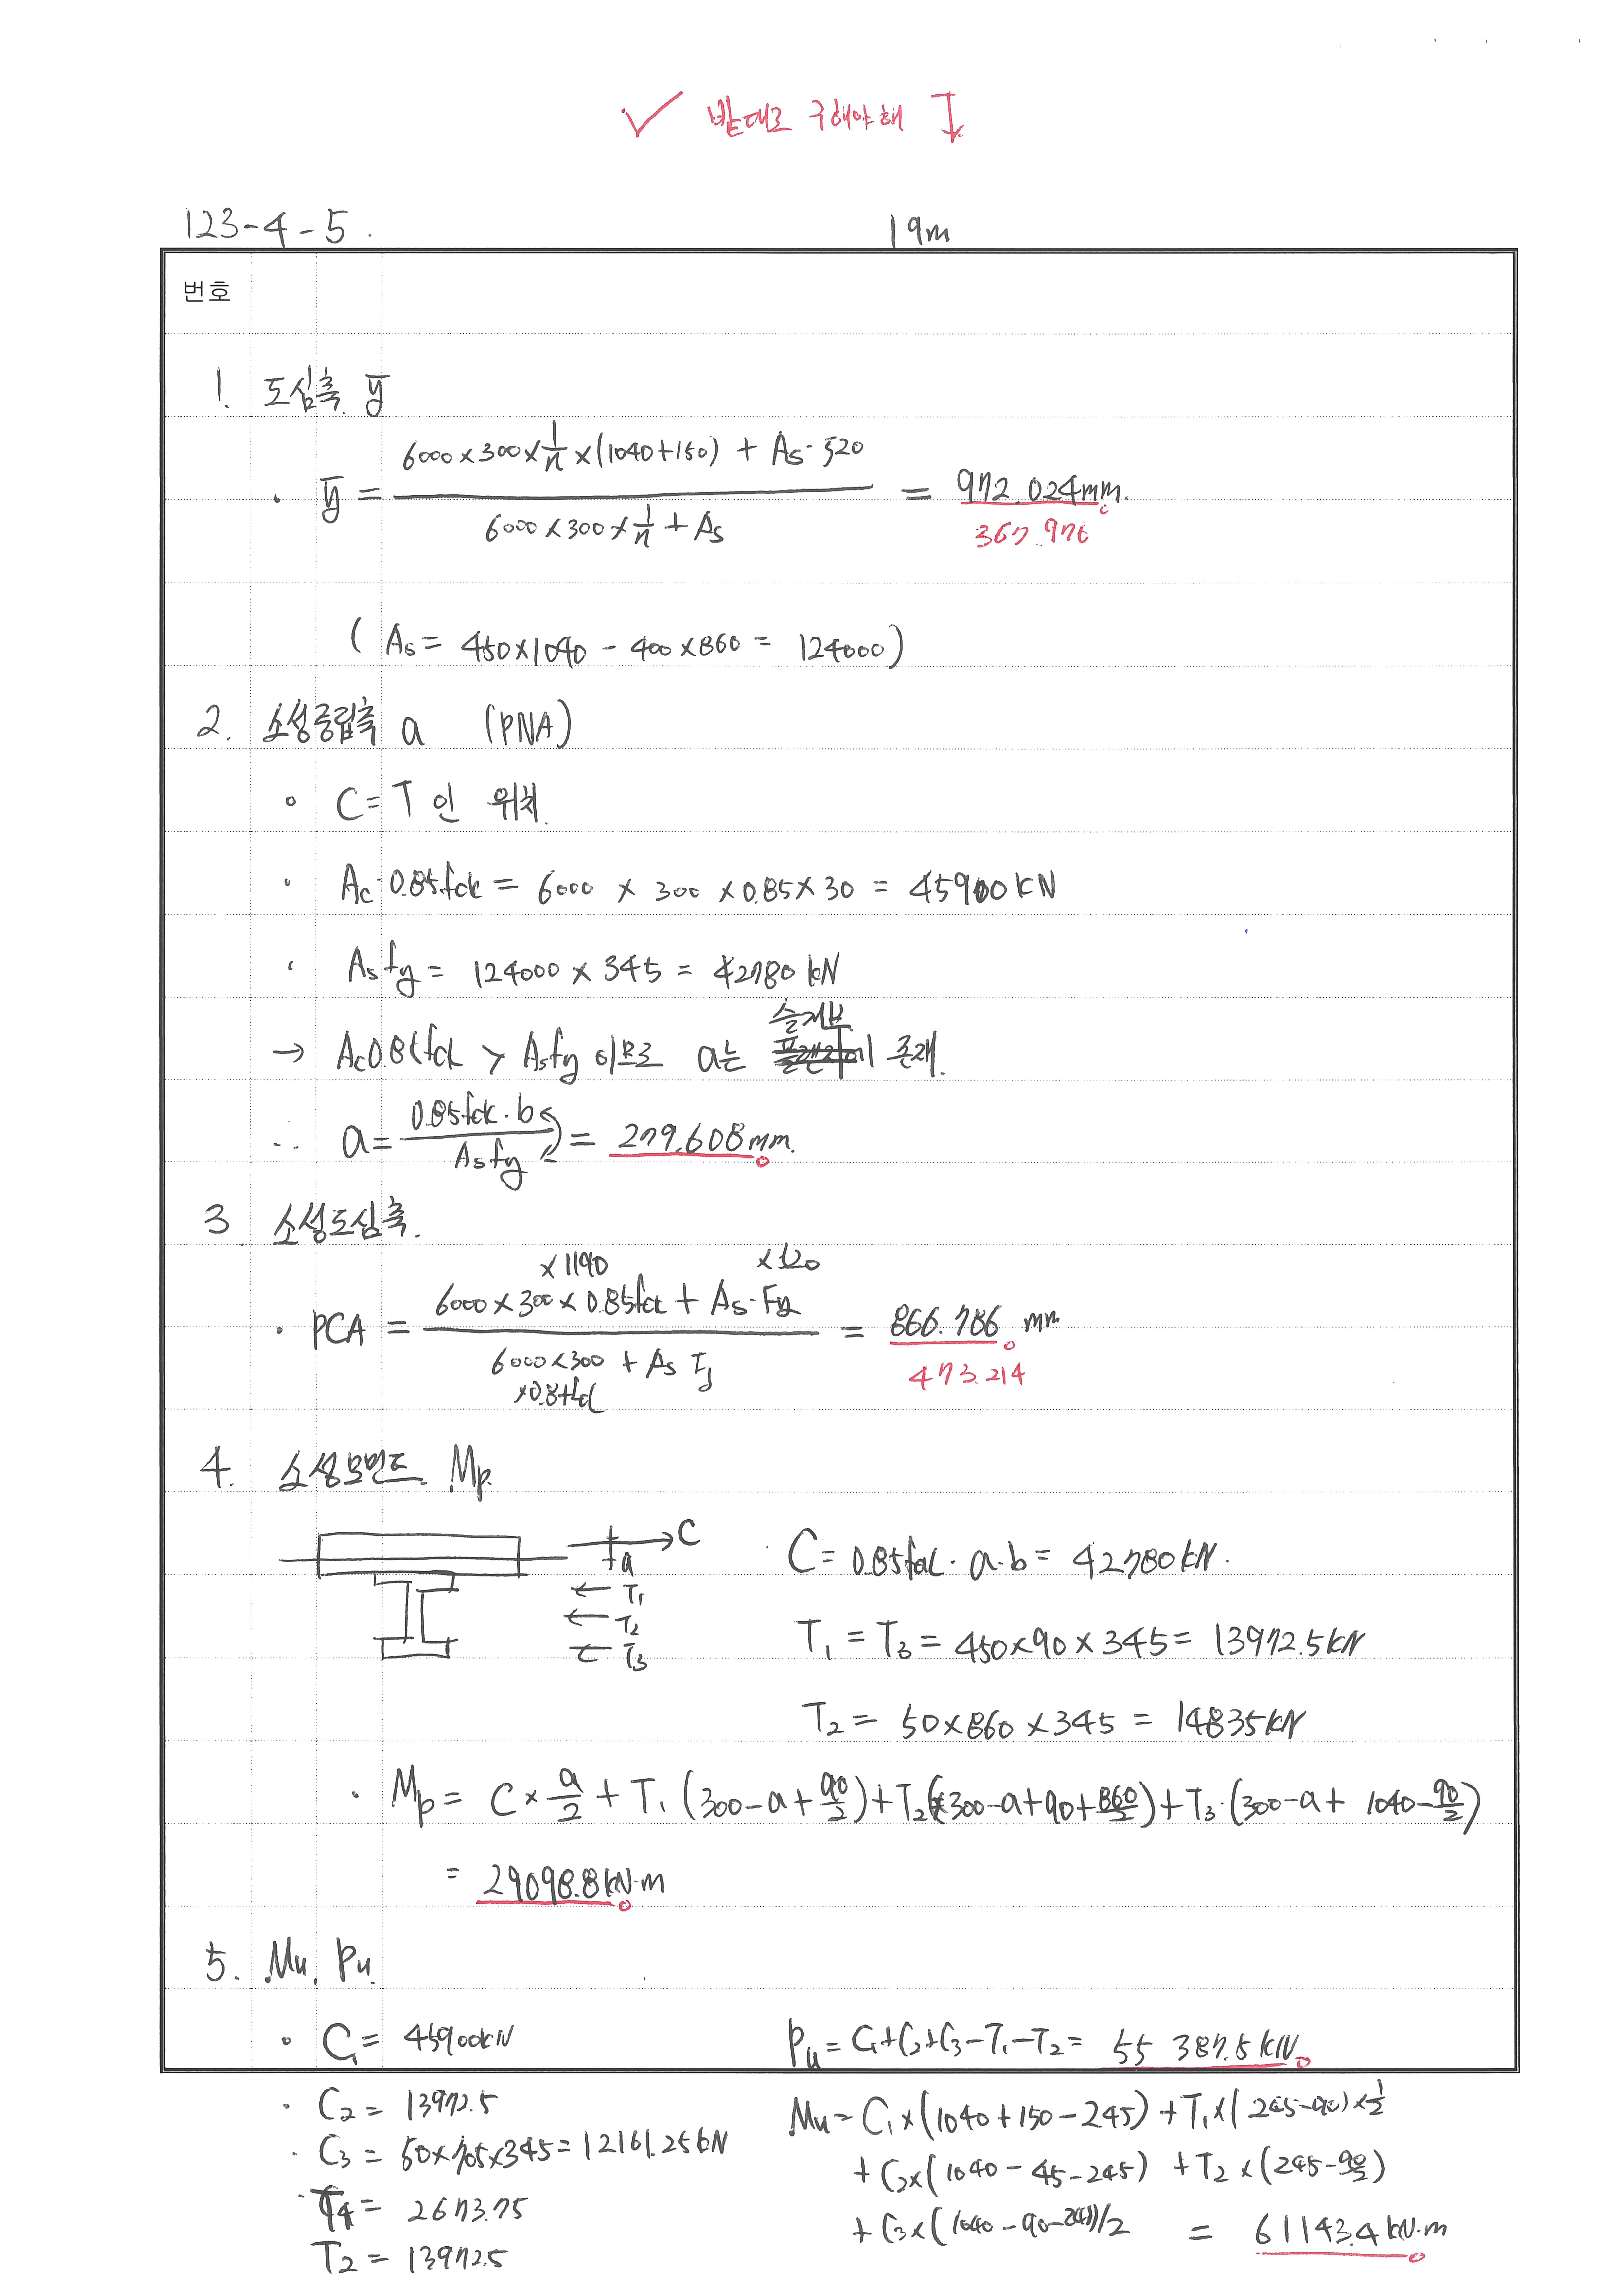 ✓ 밭대로 구해야해 ↓
123-4-5. 19m
번호
1. 도심축 ȳ
· ȳ = (6000×300×1/n×(1040+150) + As·520) / (6000×300×1/n + As) = 972.024mm.
367.976
( As = 450×1040 - 400×860 = 124000)
2. 소성중립축 a (PNA)
∘ C=T 인 위치.
· Ac·0.85fck = 6000 × 300 × 0.85×30 = 45900kN
· Asfy = 124000 × 345 = 42780 kN
→ Ac0.85fck > Asfy 이므로 a는 슬래브에 존재.
∴ a = 0.85fck·b / Asfy = 279.608mm.
3 소성도심축.
· PCA = (6000×300×0.85fck ×1190 + As·Fy ×520) / (6000×300 ×0.85fck + As Fy) = 866.786 mm
473.214
4. 소성모멘트 Mp.
C
a
T1
T2
T3
· C = 0.85fck·a·b = 42780kN.
T1 = T3 = 450×90×345 = 13972.5kN
T2 = 50×860×345 = 14835kN
· Mp = C×a/2 + T1(300-a+90/2)+T2(300-a+90+860/2)+T3·(300-a+ 1040-90/2)
= 29098.8kN·m
5. Mu, Pu
∘ C1 = 45900kN
Pu = C1+C2+C3-T1-T2 = 55 387.5kN
· C2 = 13972.5
· C3 = 50×705×345 = 12161.25kN
· T1 = 2673.75
T2 = 13972.5
Mu = C1×(1040+150-245) + T1×(245-90)×1/2
+ C2×(1040-45-245) + T2×(245-90/2)
+ C3×(1040-90-245)/2 = 61143.4kN·m